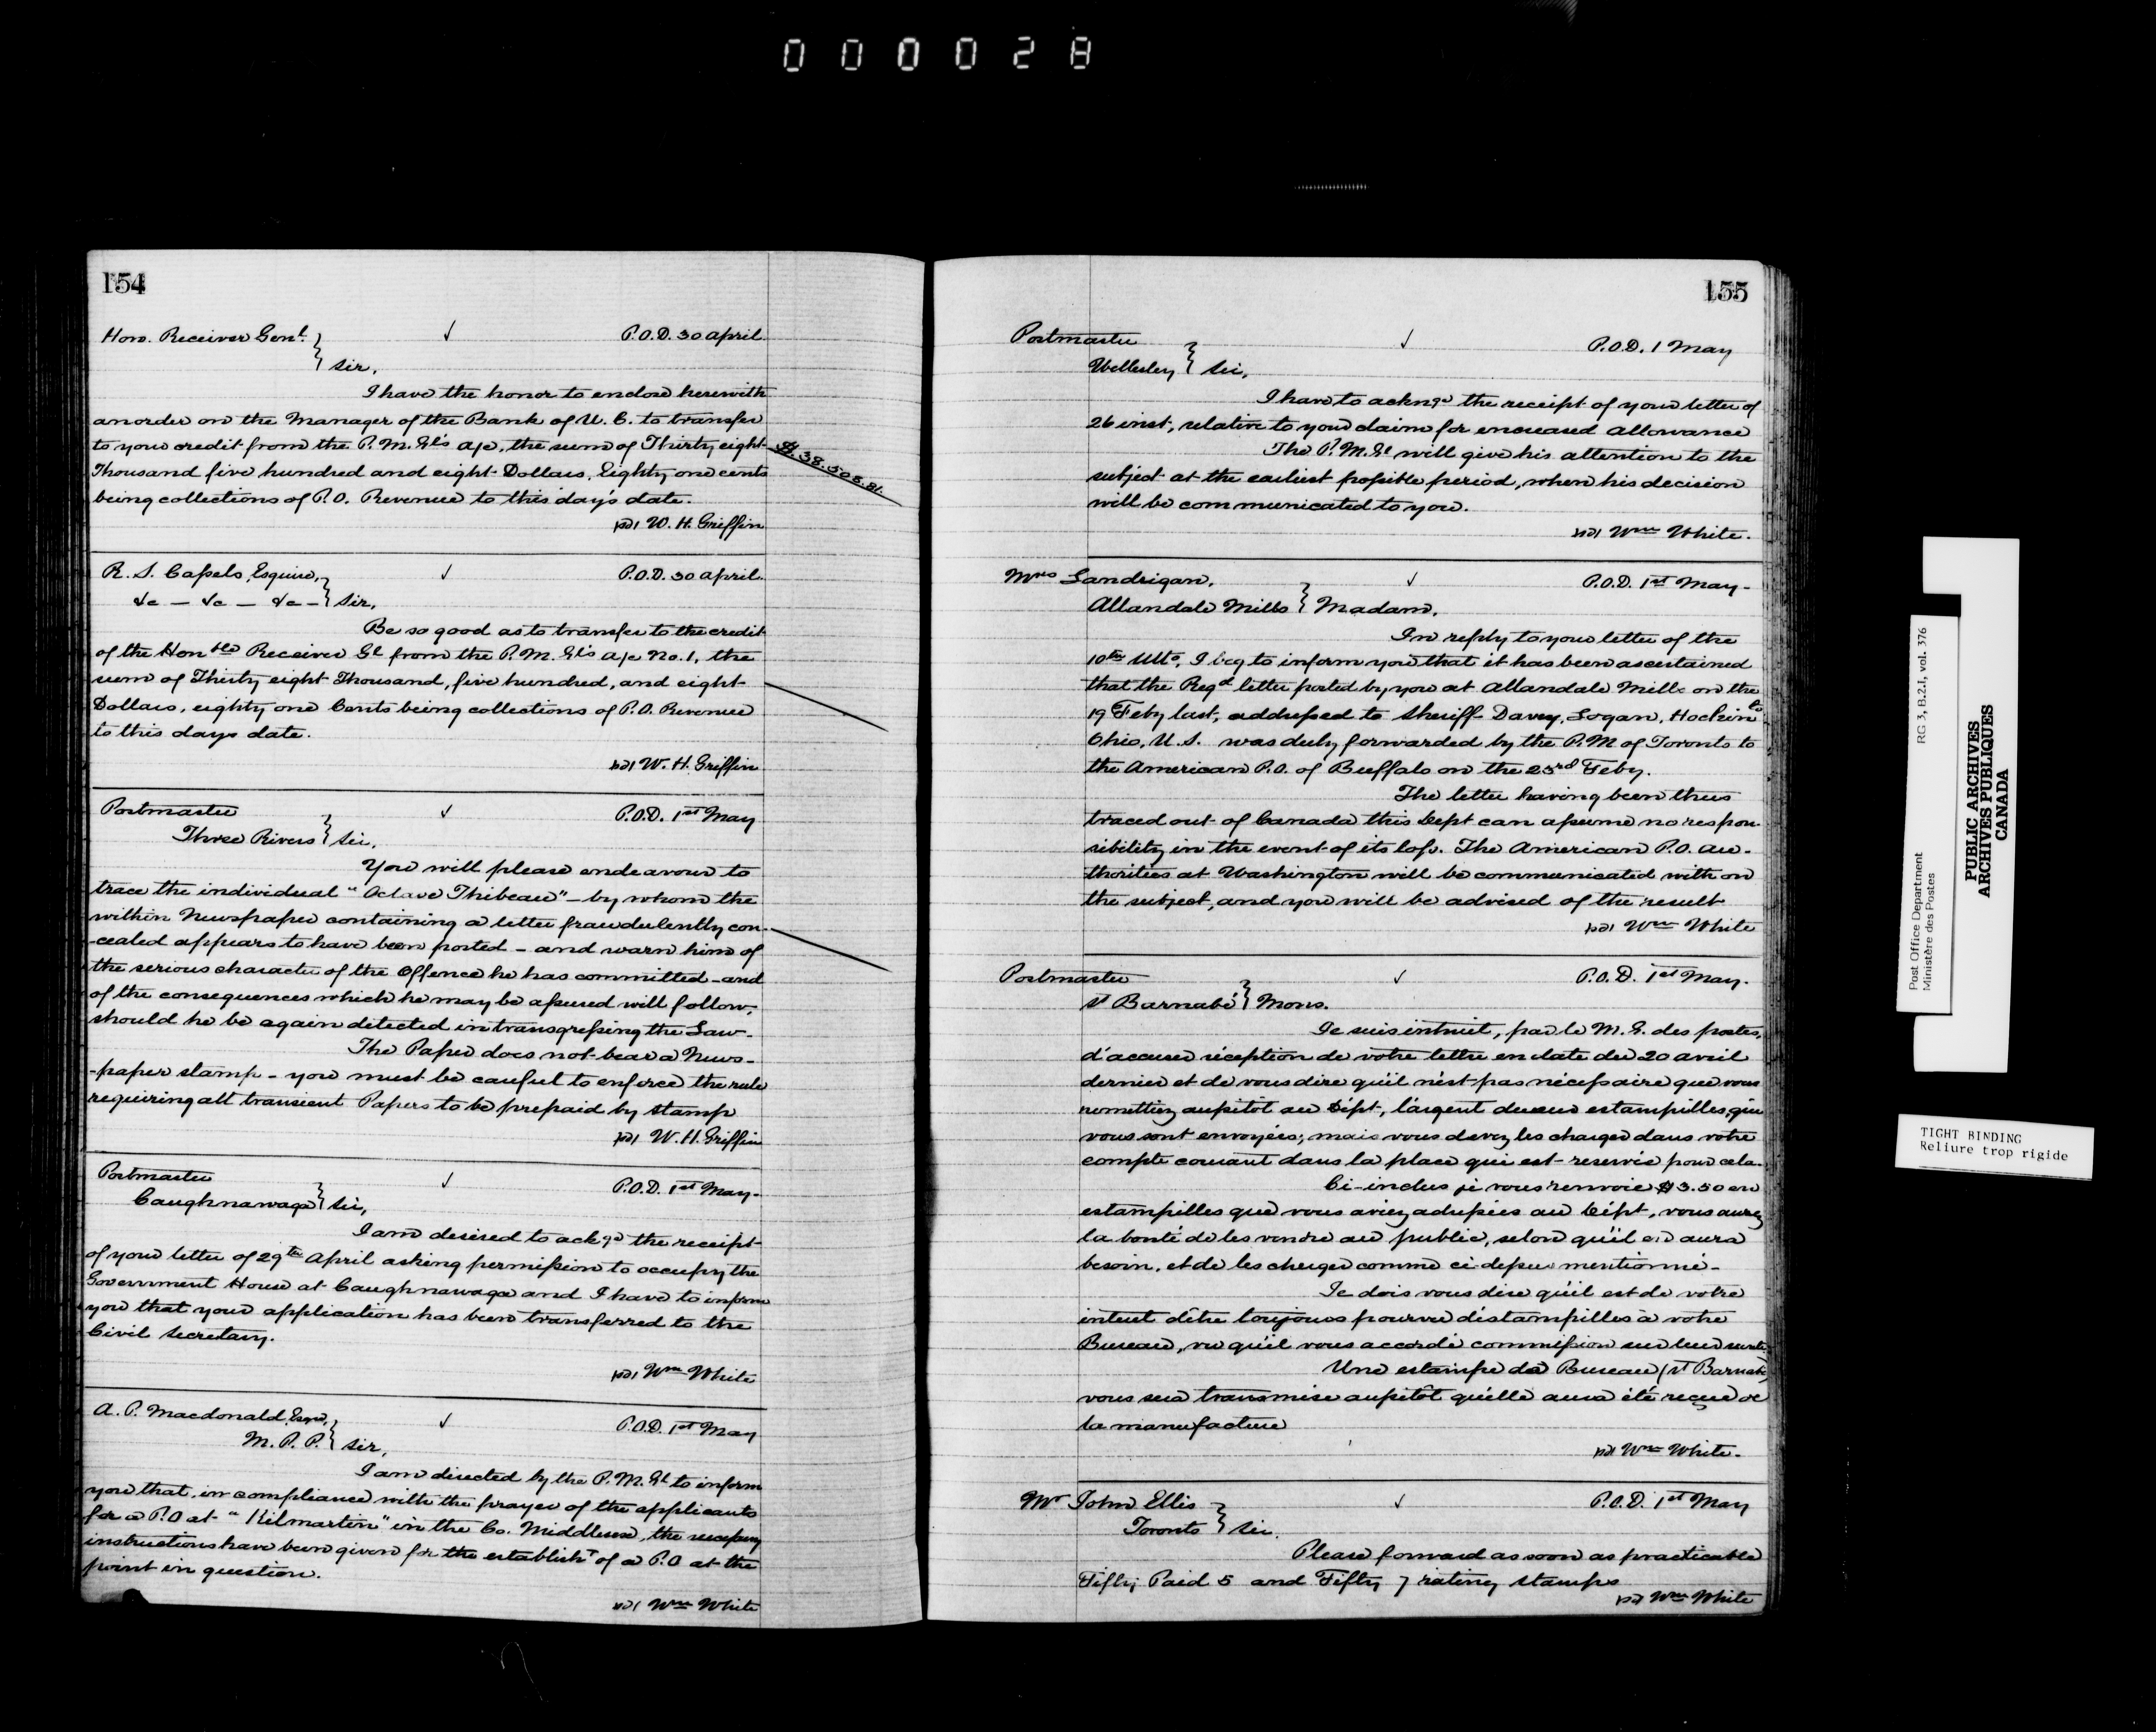 000028
154
Hon. Receiver Genl. } Sir,
P.O.D. 30 April
I have the honor to enclose herewith
an order on the Manager of the Bank of U. C. to transfer
to your credit from the P. M. Gl's a/c, the sum of Thirty eight
Thousand five hundred and eight Dollars, Eighty one cents
being collections of P.O. Revenue to this day's date.
$38.508.81.
W. H. Griffin
R. S. Cassels, Esquire,
&c — &c — &c — } Sir,
P.O.D. 30 April.
Be so good as to transfer to the credit
of the Honble Receiver Gl from the P. M. Gl's a/c No. 1, the
sum of Thirty eight Thousand, five hundred, and eight
Dollars, eighty one Cents being collections of P.O. Revenue
to this days date.
W. H. Griffin
Postmaster
Three Rivers } Sir,
P.O.D. 1st May
You will please endeavour to
trace the individual "Octave Thibeau" - by whom the
within Newspaper containing a letter fraudulently con-
-cealed appears to have been posted - and warn him of
the serious character of the Offence he has committed - and
of the consequences which he may be assured will follow,
should he be again detected in transgressing the Law.
The Paper does not bear a News-
-paper stamp - you must be careful to enforce the rule
requiring all transient Papers to be prepaid by stamp
W. H. Griffin
Postmaster
Caughnawaga } Sir,
P.O.D. 1st May.
I am desired to ackgd the receipt
of your letter of 29th April asking permission to occupy the
Government House at Caughnawaga and I have to inform
you that your application has been transferred to the
Civil Secretary.
Wm White
A. P. Macdonald, Esqre,
M. P. P. } Sir,
P.O.D. 1st May
I am directed by the P. M. Gl to inform
you that, in compliance with the prayer of the applicants
for a P.O at "Kilmartin" in the Co. Middlesex, the necessary
instructions have been given for the establisht of a P.O at the
point in question.
Wm White
155
Postmaster
Wellesley } Sir,
P.O.D. 1 May
I have to ackngd the receipt of your letter of
26 inst, relative to your claim for encreased allowance
The P. M. Gl will give his attention to the
subject at the earliest possible period, when his decision
will be communicated to you.
Wm White.
Mrs Landrigan,
Allandale Mills } Madam,
P.O.D. 1st May -
In reply to your letter of the
10th Ulto, I beg to inform you that it has been ascertained
that the Regd letter posted by you at Allandale Mills on the
19 Feby last, addressed to Sheriff Davey, Logan, Hockin Co
Ohio, U.S. was duly forwarded by the P.M of Toronto to
the American P.O. of Buffalo on the 23rd Feby.
The letter having been thus
traced out of Canada this Dept can assume no respon-
sibility in the event of its loss. The American P.O. au-
thorities at Washington will be communicated with on
the subject, and you will be advised of the result
Wm White
Postmaster
St Barnabé } Mons.
P.O.D. 1st May.
Je suis intruit, par le M. G. des postes,
d'accuser réception de votre lettre en date du 20 avril
dernier et de vous dire qu'il n'est pas nécessaire que vous
remettiez aussitôt au Dépt, l'argent des estampilles, qui
vous sont envoyées; mais vous devez les charger dans votre
compte courant dans la place qui est reservée pour cela.
Ci-inclus je vous renvoie $3.50 en
estampilles que vous aviez adressées au Dépt, vous aurez
la bonté de les vendre au public, selon qu'il en aura
besoin, et de les charger comme ci dessus mentionné -
Je dois vous dire qu'il est de votre
interet d'être toujours pourvu d'estampilles à votre
Bureau, vu qu'il vous accordé commission sur leur vente.
Une estampe de Bureau (St Barnabé)
vous sera transmise aussitôt qu'elle aura été reçue de
la manufacture
Wm White.
Mr John Ellis
Toronto } Sir.
P.O.D. 1st May
Please forward as soon as practicable
Fifty Paid 5 and Fifty 7 rating stamps
Wm White
Post Office Department
Ministère des Postes
RG 3, B.2.1, vol. 376
PUBLIC ARCHIVES
ARCHIVES PUBLIQUES
CANADA
TIGHT BINDING
Reliure trop rigide